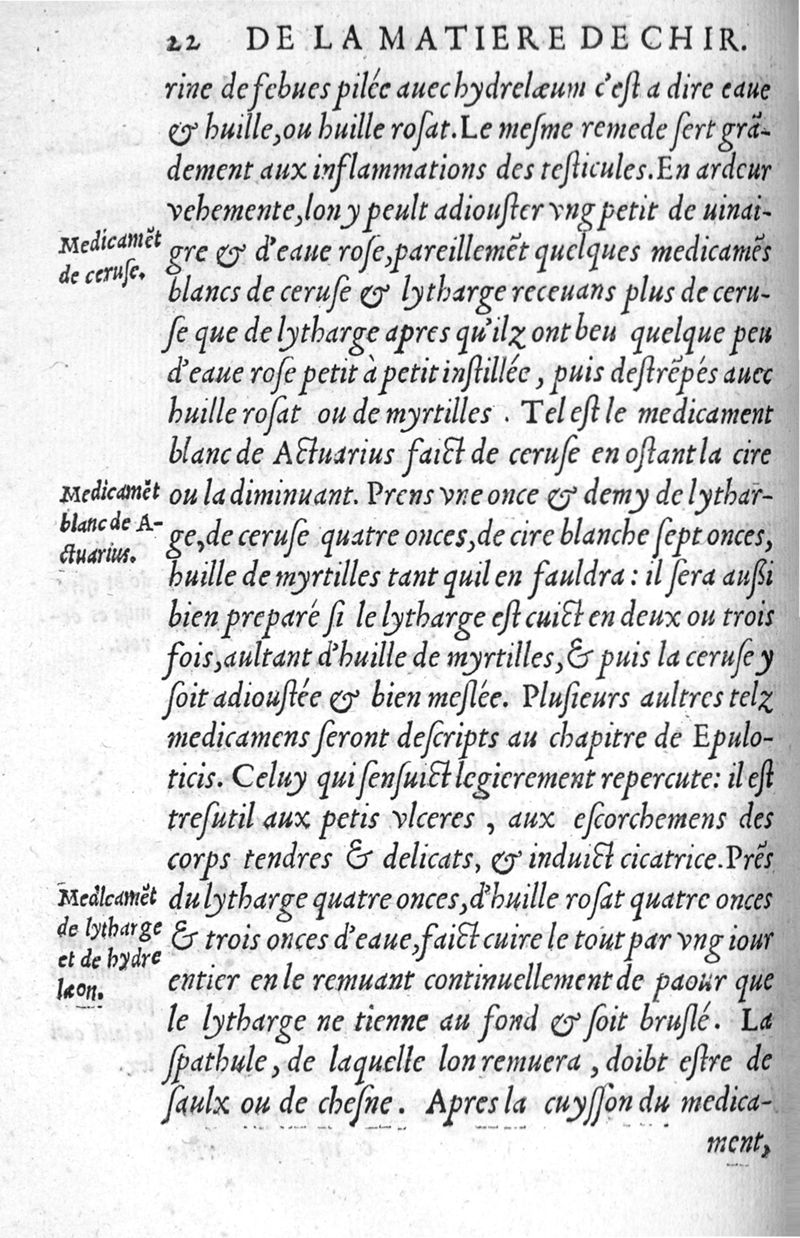 22 DE LA MATIERE DE CHIR.
rine de febues pilée auec hydrelæum c'eſt a dire eaue
& huille, ou huille roſat. Le meſme remede ſert grã-
dement aux inflammations des teſticules. En ardeur
vehemente, lon y peult adiouſter vng petit de uinai-
Medicamẽt
de ceruſe.
gre & d'eaue roſe, pareillemẽt quelques medicamẽs
blancs de ceruſe & lytharge receuans plus de ceru-
ſe que de lytharge apres qu'ilz ont beu quelque peu
d'eaue roſe petit à petit inſtillée, puis deſtrẽpés auec
huille roſat ou de myrtilles. Tel eſt le medicament
blanc de Actuarius faict de ceruſe en oſtant la cire
Medicamẽt
blanc de A-
ctuarius.
ou la diminuant. Prens vne once & demy de lythar-
ge, de ceruſe quatre onces, de cire blanche ſept onces,
huille de myrtilles tant quil en fauldra : il ſera auſſi
bien preparé ſi le lytharge eſt cuict en deux ou trois
fois, aultant d'huille de myrtilles, & puis la ceruſe y
ſoit adiouſtée & bien meſlée. Pluſieurs aultres telz
medicamens ſeront deſcripts au chapitre de Epulo-
ticis. Celuy qui ſenſuict legierement repercute: il eſt
treſutil aux petis vlceres, aux eſcorchemens des
corps tendres & delicats, & induict cicatrice. Prẽs
Medicamẽt
de lytharge
et de hydre
læon.
du lytharge quatre onces, d'huille roſat quatre onces
& trois onces d'eaue, faict cuire le tout par vng iour
entier en le remuant continuellement de paour que
le lytharge ne tienne au fond & ſoit bruſlé. La
ſpathule, de laquelle lon remuera, doibt eſtre de
ſaulx ou de cheſne. Apres la cuyſſon du medica-
ment,